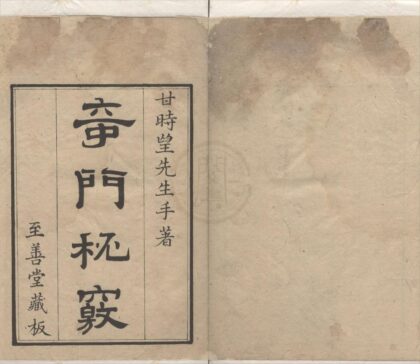 甘時望先生手著
竒門秘竅
至善堂藏板